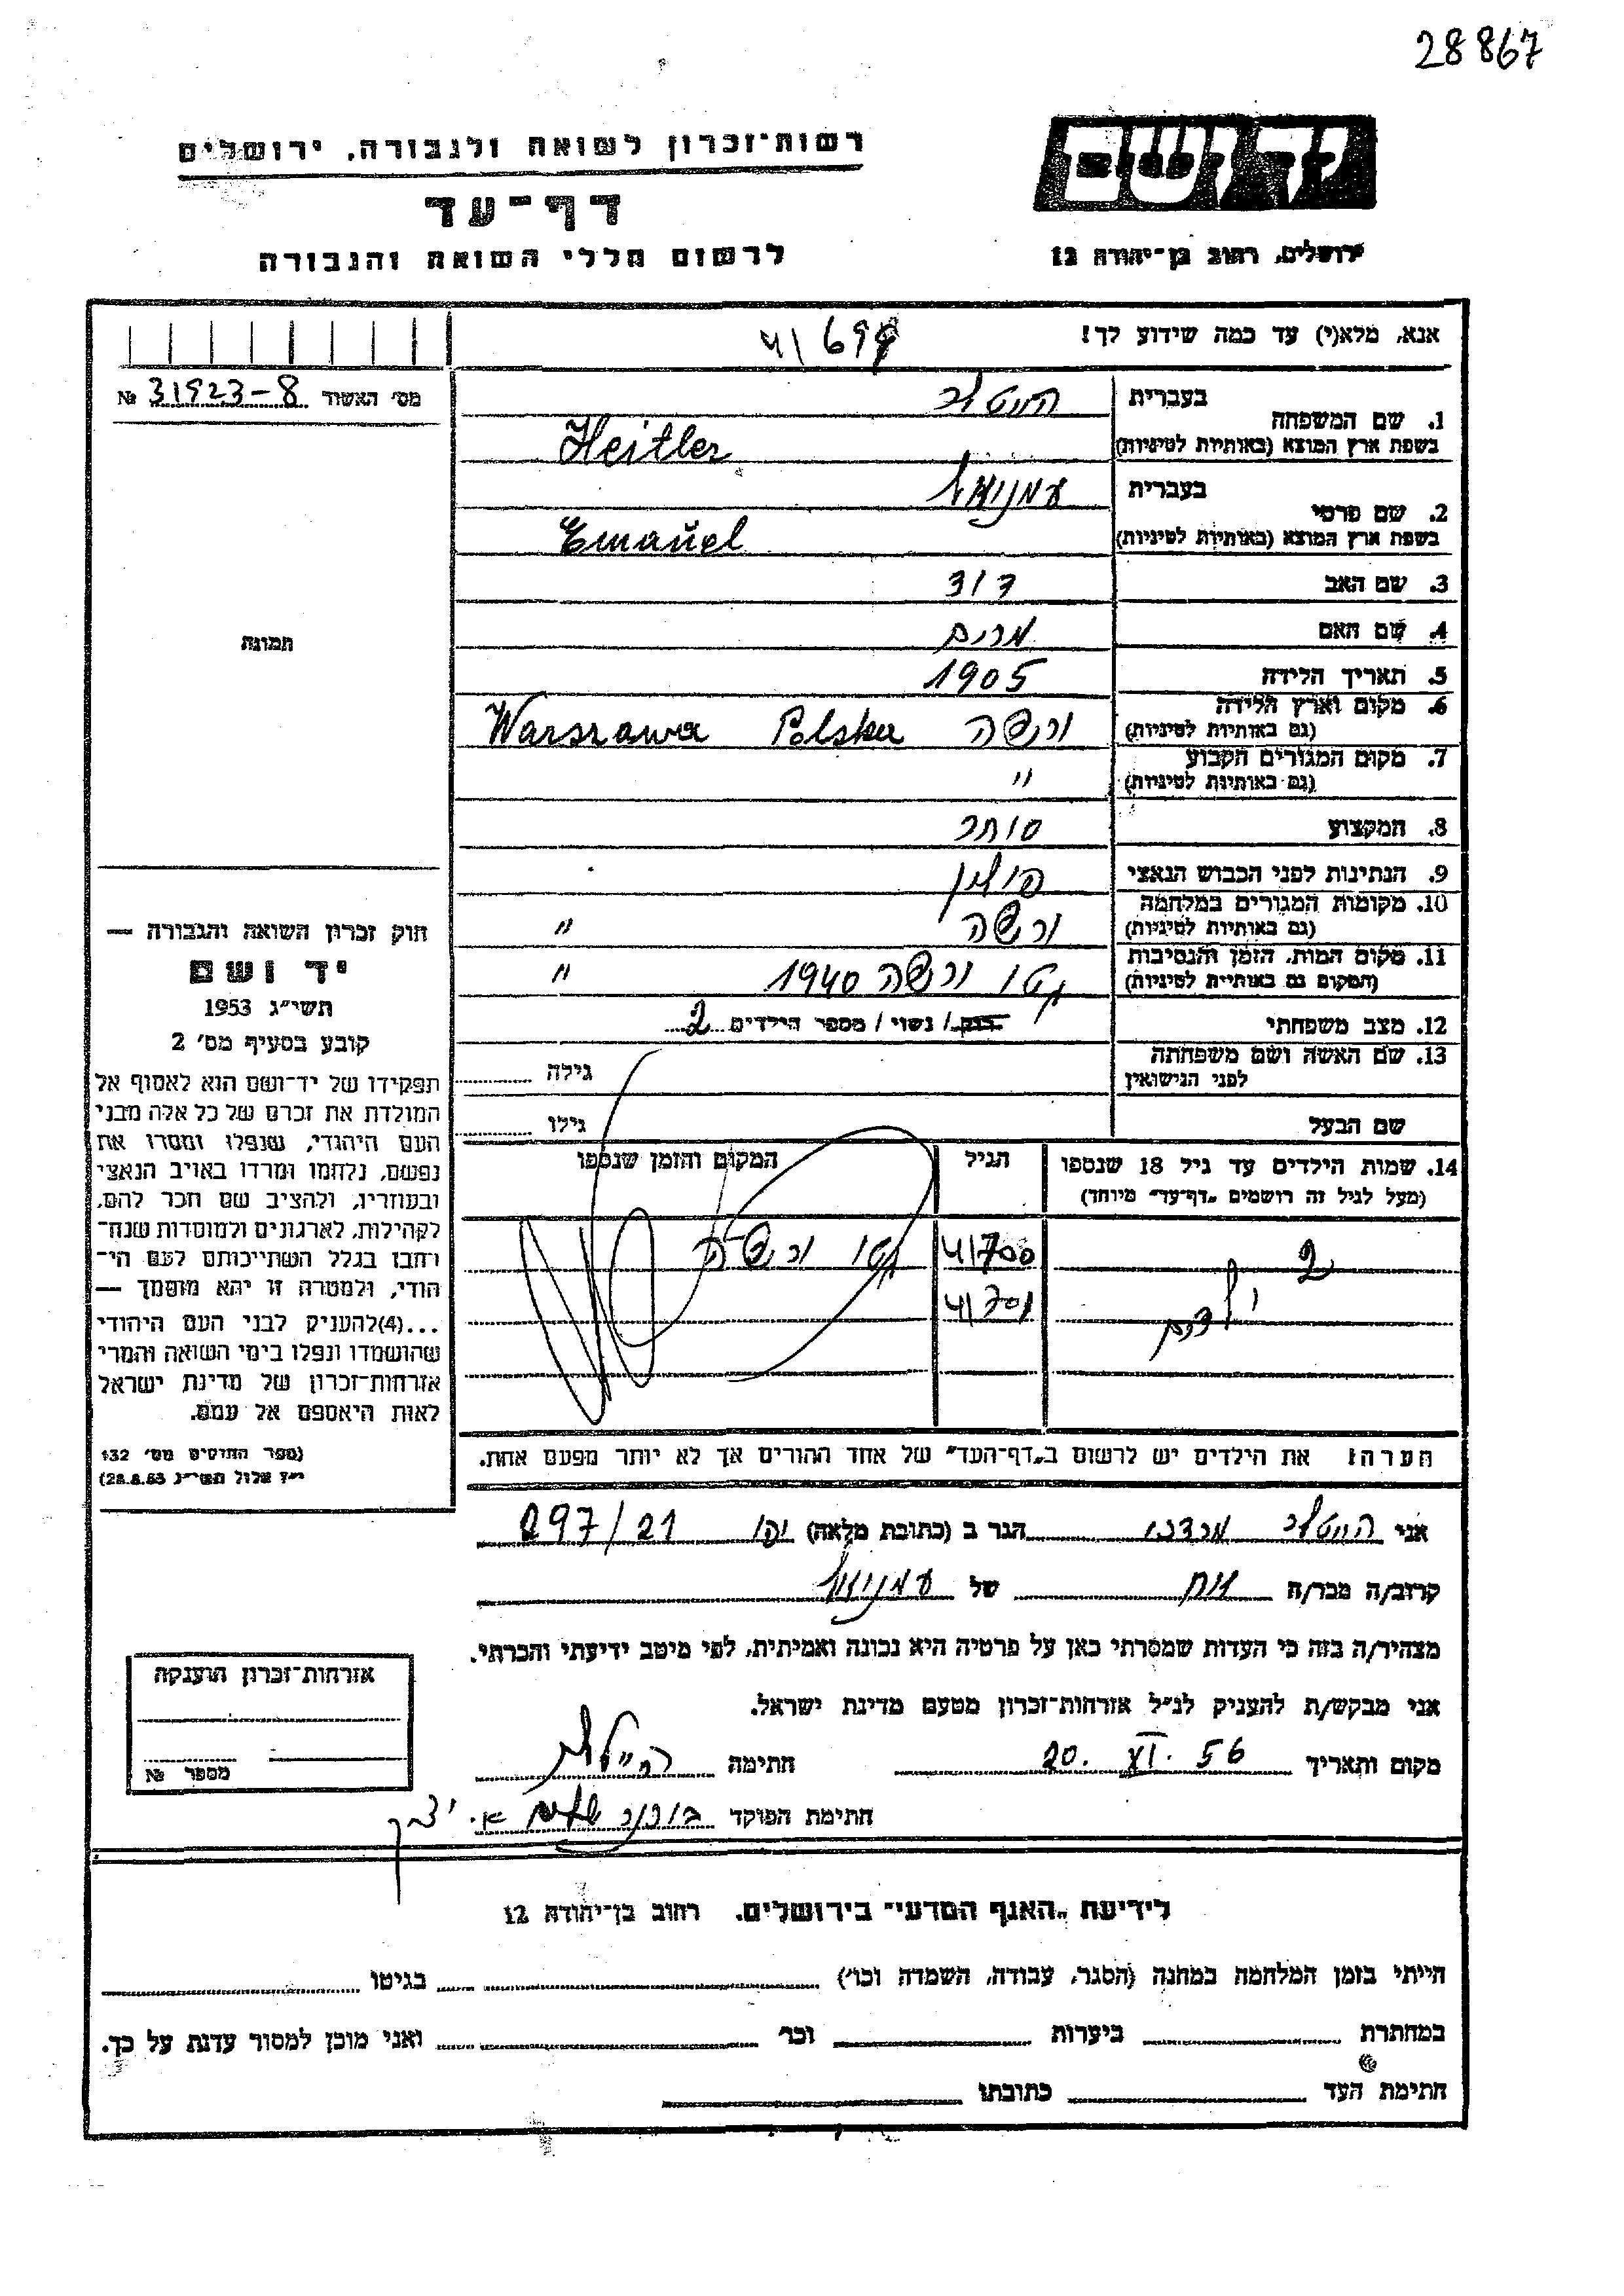 28867
רשות־זכרון לשואה ולגבורה, ירושלים
יד ושם
דף־עד
לרשום חללי השואה והגבורה
ירושלים, רחוב בן־יהודה 12
אנא, מלא(י) עד כמה שידוע לך!
מס׳ האשור 31923-8 №
1. שם המשפחה בעברית הייטלר
בשפת ארץ המוצא (באותיות לטיניות) Heitler
2. שם פרטי בעברית עמנואל
בשפת ארץ המוצא (באותיות לטיניות) Emanuel
3. שם האב דוד
4. שם האם מרים
5. תאריך הלידה 1905
6. מקום וארץ הלידה (גם באותיות לטיניות) ורשה Polska Warszawa
7. מקום המגורים הקבוע (גם באותיות לטיניות) "
8. המקצוע סוחר
9. הנתינות לפני הכבוש הנאצי פולין
10. מקומות המגורים במלחמה (גם באותיות לטיניות) ורשה "
11. מקום המות, הזמן והנסיבות (המקום גם באותיות לטיניות) גטו ורשה 1940 "
12. מצב משפחתי רוק / נשוי / מספר הילדים 2
13. שם האשה ושם משפחתה לפני הנישואין גילה
שם הבעל גילו
14. שמות הילדים עד גיל 18 שנספו (מעל לגיל זה רושמים „דף־עד״ מיוחד) הגיל המקום והזמן שנספו
2 ילדים 41/700 גטו ורשה
41/701
הערה: את הילדים יש לרשום ב„דף־העד״ של אחד ההורים אך לא יותר מפעם אחת.
תמונה
חוק זכרון השואה והגבורה —
יד ושם
תשי״ג 1953
קובע בסעיף מס׳ 2
תפקידו של יד־ושם הוא לאסוף אל
המולדת את זכרם של כל אלה מבני
העם היהודי, שנפלו ומסרו את
נפשם, נלחמו ומרדו באויב הנאצי
ובעוזריו, ולהציב שם וזכר להם,
לקהילות, לארגונים ולמוסדות שנח־
רחבו בגלל השתייכותם לעם הי־
הודי, ולמטרה זו יהא מוסמך —
...(4) להעניק לבני העם היהודי
שהושמדו ונפלו בימי השואה והמרי
אזרחות־זכרון של מדינת ישראל
לאות היאספם אל עמם.
(ספר החוקים מס׳ 132
י״ז אלול תשי״ג 28.8.53)
אני הייטלר מרדכי הגר ב (כתובת מלאה) יפו 297/21
קרוב/ה מכר/ה אח של עמנואל
מצהיר/ה בזה כי העדות שמסרתי כאן על פרטיה היא נכונה ואמיתית, לפי מיטב ידיעתי והכרתי.
אני מבקש/ת להעניק לנ״ל אזרחות־זכרון מטעם מדינת ישראל.
מקום ותאריך 20. XI. 56 חתימה
חתימת הפוקד
אזרחות־זכרון הוענקה
מספר №
לידיעת „האגף המדעי״ בירושלים, רחוב בן־יהודה 12
הייתי בזמן המלחמה במחנה (הסגר, עבודה, השמדה וכו׳) בגיטו
במחתרת ביערות וכו׳ ואני מוכן למסור עדות על כך.
חתימת העד כתובתו